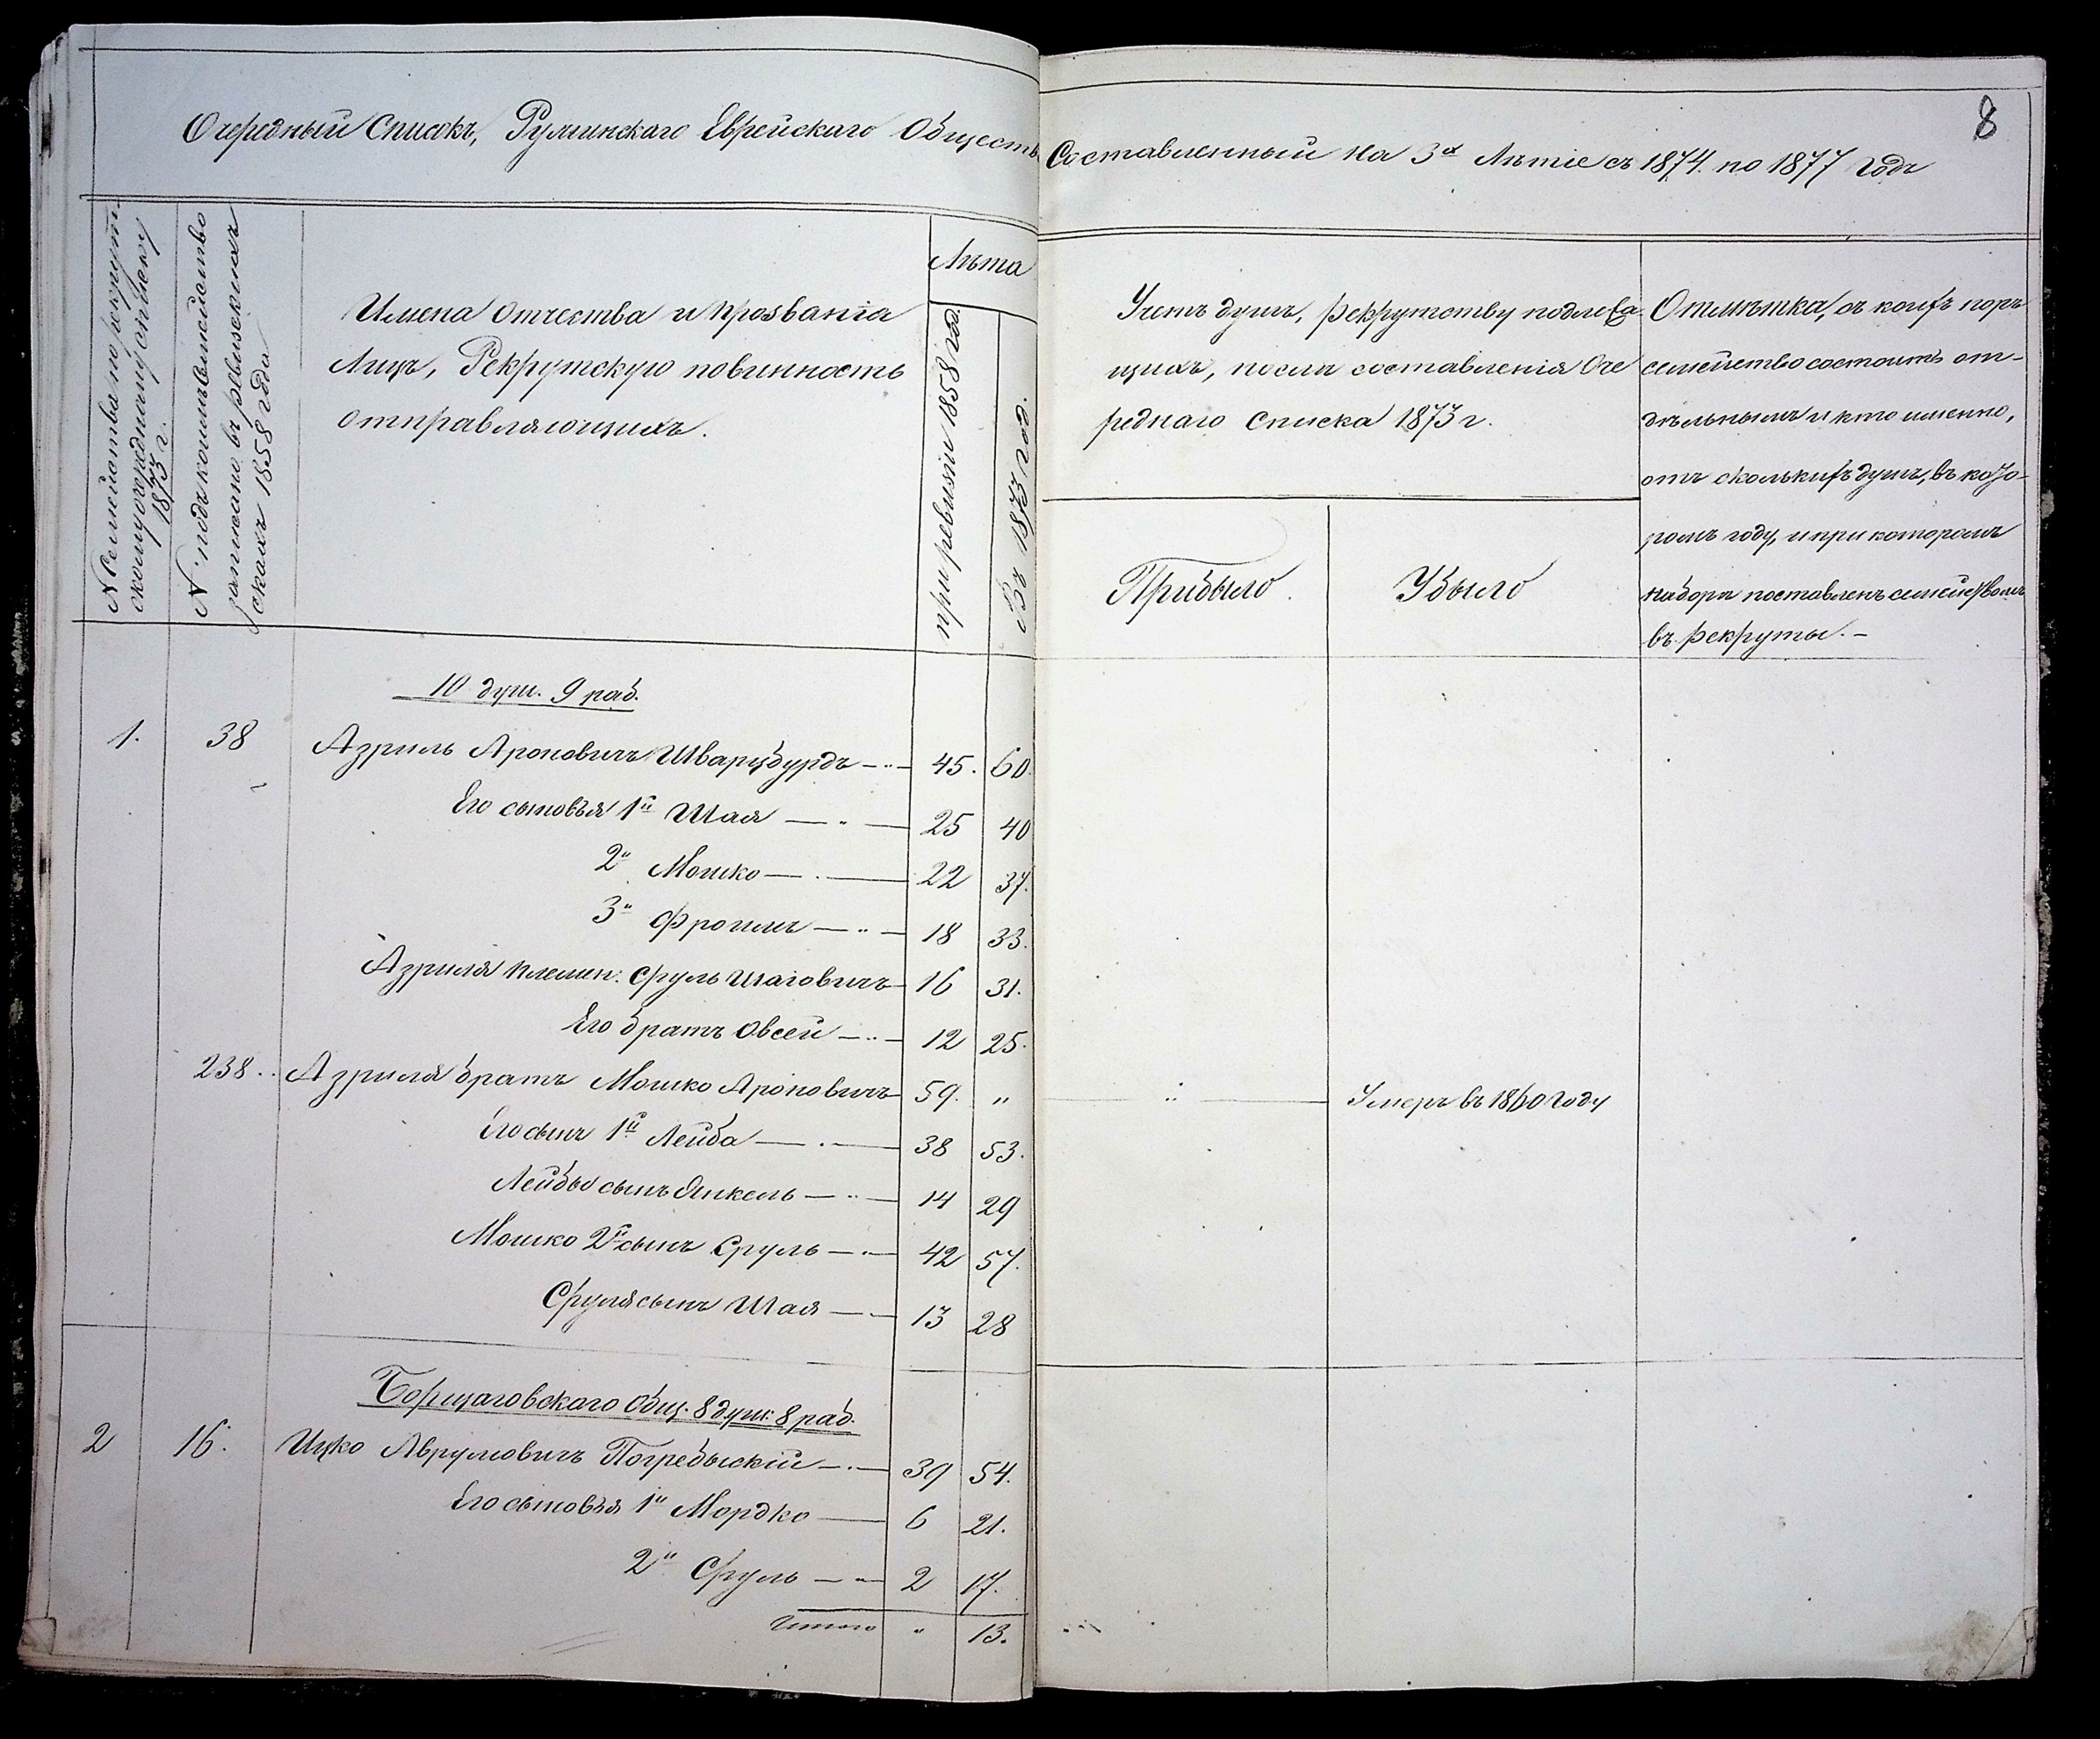 8
Очередный Списокъ, Ружинскаго Еврейскаго Обществ
Составленный на 3х Лѣтіе съ 1874. по 1877 Годъ
№ Семейства по рекрут-
скому очередному списку
1873 г.
№ подъ коимъ семейство
записано въ ревизскихъ
сказкахъ 1858 года
Имена Отчества и Прозванія
Лицъ, Рекрутскую повинность
отправляющихъ.
Лѣта
при ревизіи 1858 год.
Въ 1873 год.
Учетъ душъ, рекрутству подлежа
щихъ, послѣ составленія Оче
реднаго Списка 1873 г.
Прибыло.
Убыло
Отмѣтка, съ коихъ поръ
семейство состоитъ от-
дѣльнымъ и кто именно,
отъ сколькихъ душъ, въ кото-
ромъ году, и при которомъ
наборѣ поставленъ семействомъ
въ рекруты. -
10 душ. 9 раб.
1. 38 Азриль Ароновичъ Шварцбурдъ — 45. 60.
Его сыновья 1й Шая — 25 40
2й Мошко — 22 37.
3й Фроимъ — 18 33.
Азриля племен: Сруль Шаіовичъ 16 31.
Его братъ Овсей — 12 25.
238. Азриля братъ Мошко Ароновичъ 59. " Умеръ въ 1860 Году
Его сынъ 1й Лейба — 38 53.
Лейбы сынъ Янкель — 14 29
Мошко 2й сынъ Сруль — 42 57.
Сруля сынъ Шая — 13 28
Борщаговскаго Общ. 8 душ. 8 раб.
2 16. Ицко Аврумовичъ Погребыскій — 39 54.
Его сыновья 1й Мордко — 6 21.
2й Сруль — 2 17.
Итого " 13.